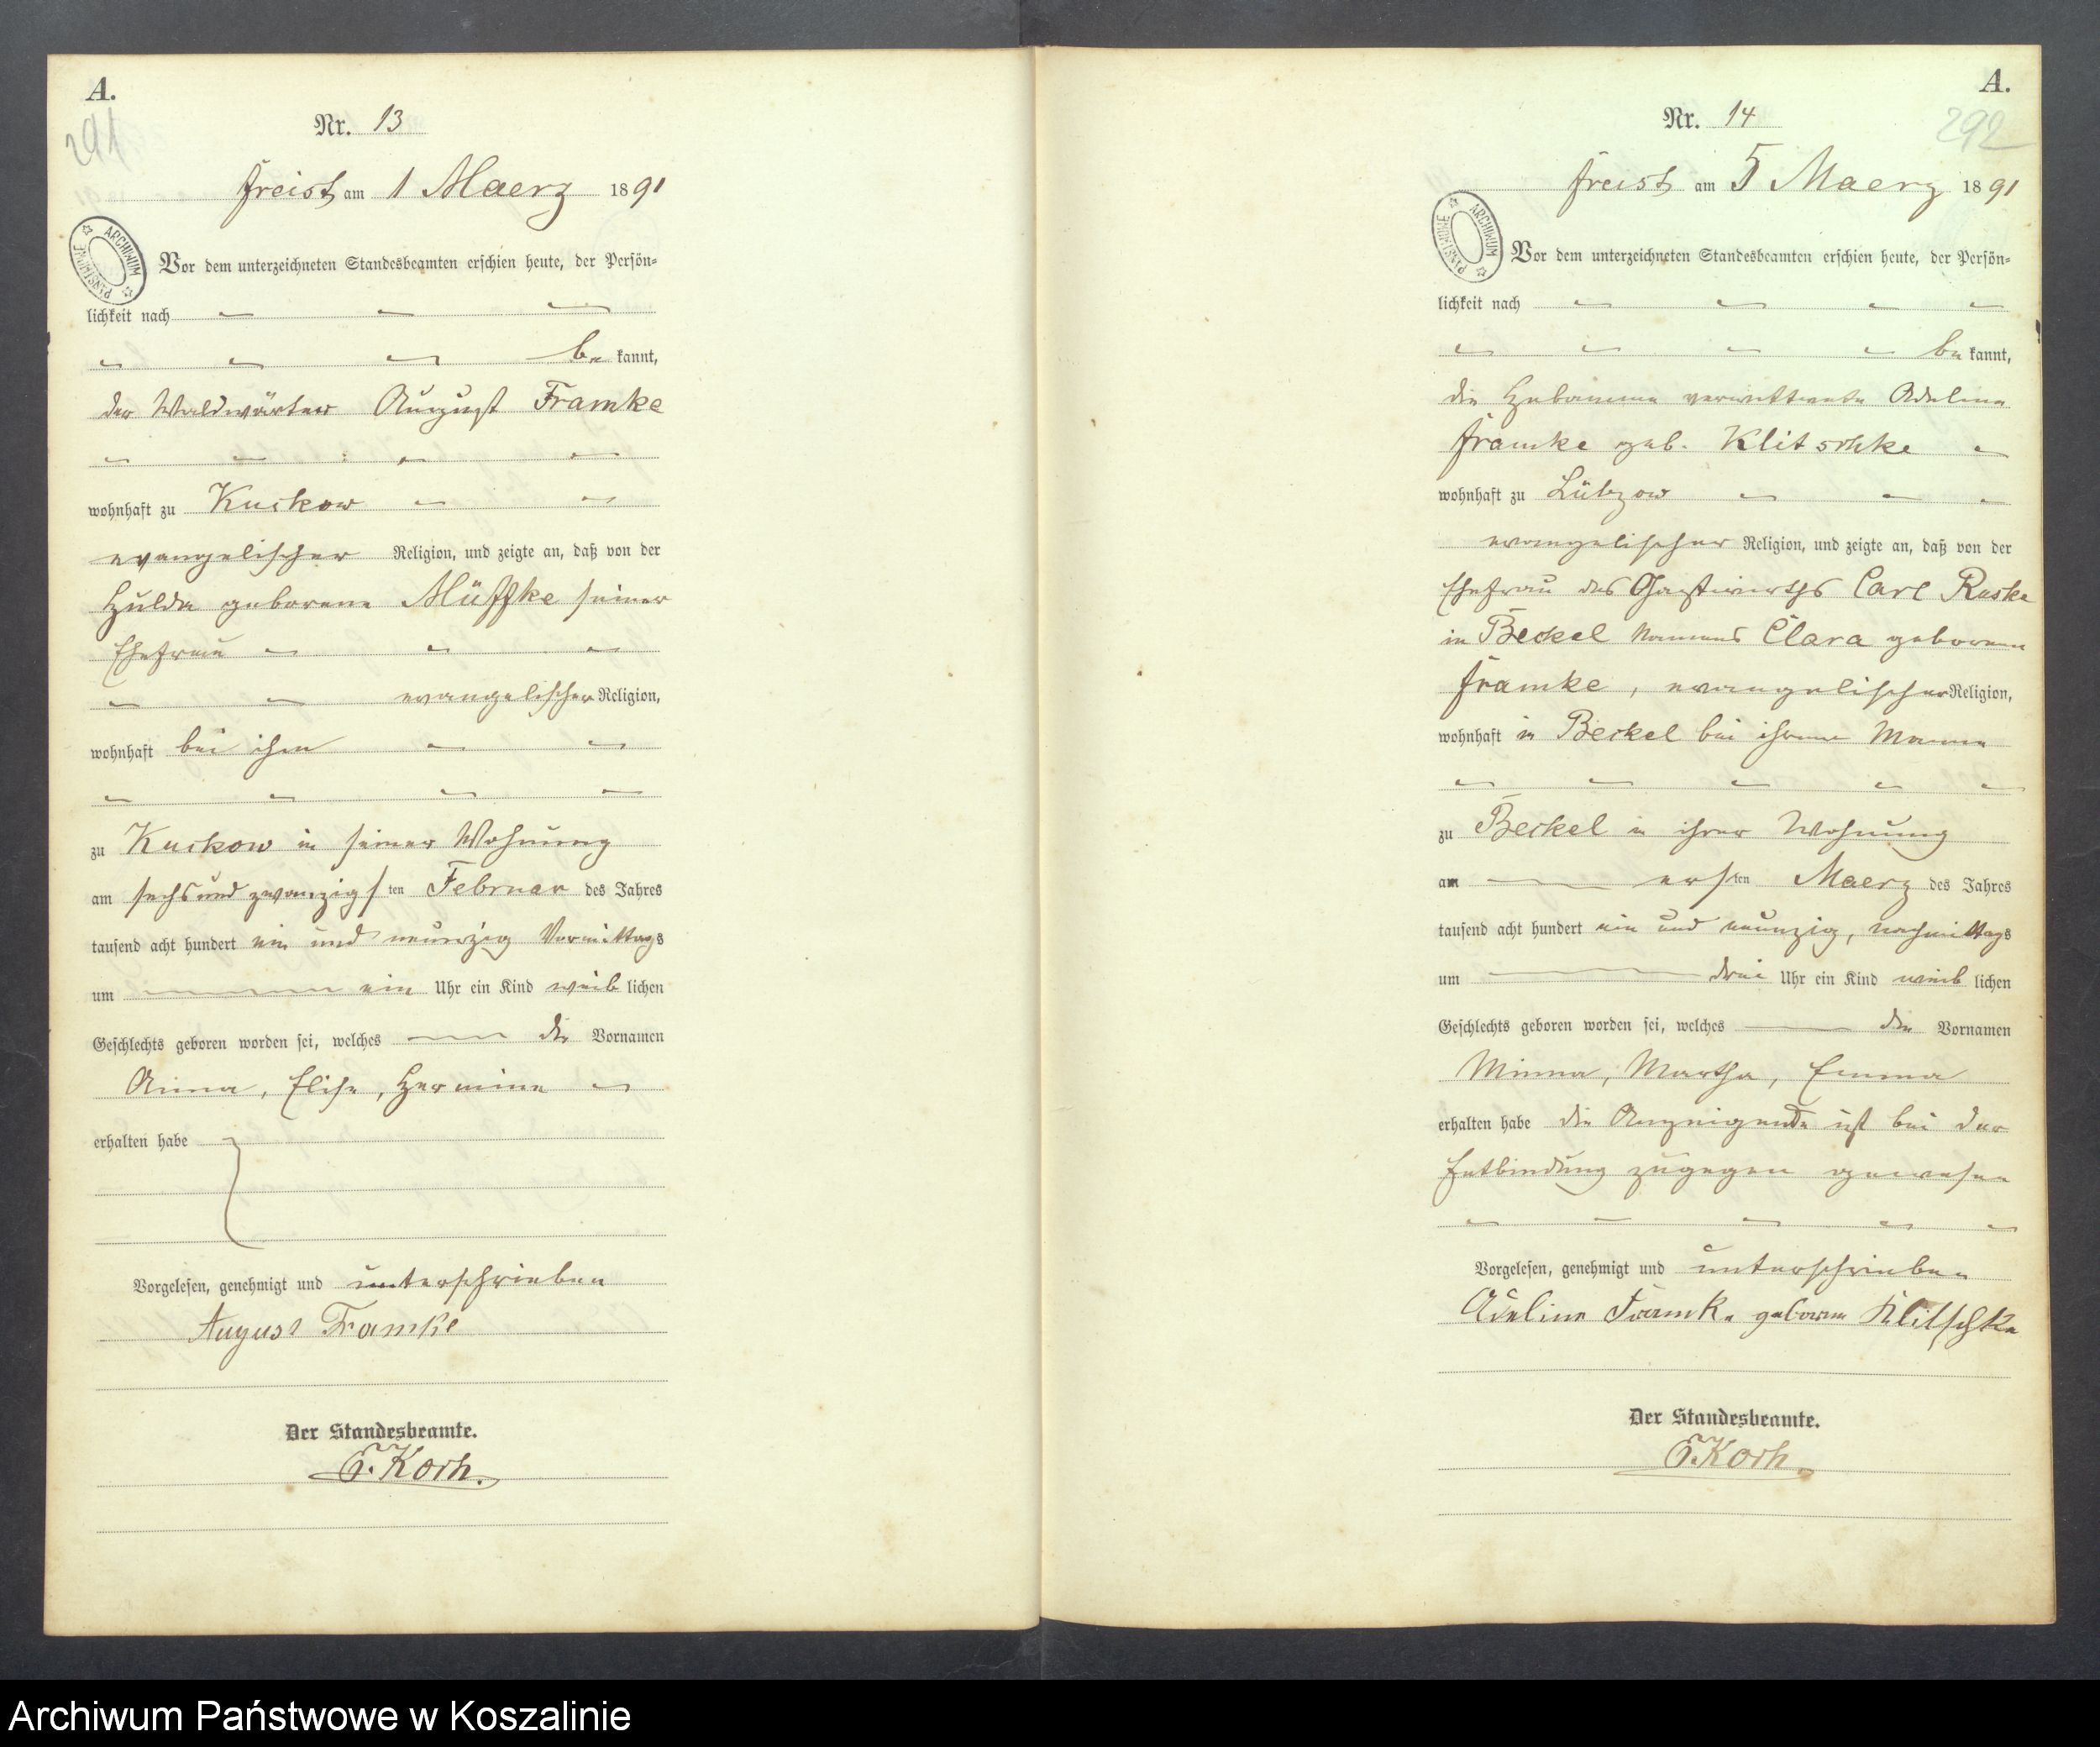 A.
291
Nr. 13
Freist am 1 Maerz 1891
ARCHIWUM PAŃSTWOWE
Vor dem unterzeichneten Standesbeamten erschien heute, der Persön-
lichkeit nach
be kannt,
der Waldwärter August Framke
wohnhaft zu Kuckow
evangelischer Religion, und zeigte an, daß von der
Hulda geborene Müffke seiner
Ehefrau
evangelischer Religion,
wohnhaft bei ihm
zu Kuckow in seiner Wohnung
am sechs und zwanzigsten Februar des Jahres
tausend acht hundert ein und neunzig Vormittags
um ein Uhr ein Kind weib lichen
Geschlechts geboren worden sei, welches die Vornamen
Anna, Elise, Hermine
erhalten habe
Vorgelesen, genehmigt und unterschrieben
August Framke
Der Standesbeamte.
E. Koch.
A.
292
Nr. 14
Freist am 5 Maerz 1891
ARCHIWUM PAŃSTWOWE
Vor dem unterzeichneten Standesbeamten erschien heute, der Persön-
lichkeit nach
be kannt,
die Hebamme verwittwete Adeline
Framke geb. Klitschke
wohnhaft zu Lübzow
evangelischer Religion, und zeigte an, daß von der
Ehefrau des Gastwirths Carl
in Beckel Namens Clara geborene
Framke, evangelischer Religion,
wohnhaft in Beckel bei ihrem Manne
zu Beckel in ihrer Wohnung
am ersten Maerz des Jahres
tausend acht hundert ein und neunzig, nachmittags
um drei Uhr ein Kind weib lichen
Geschlechts geboren worden sei, welches die Vornamen
Minna, Martha, Emma
erhalten habe die Anzeigende ist bei der
Entbindung zugegen gewesen
Vorgelesen, genehmigt und unterschrieben
Adeline Framke geborene Klitschke
Der Standesbeamte.
E. Koch.
Archiwum Państwowe w Koszalinie